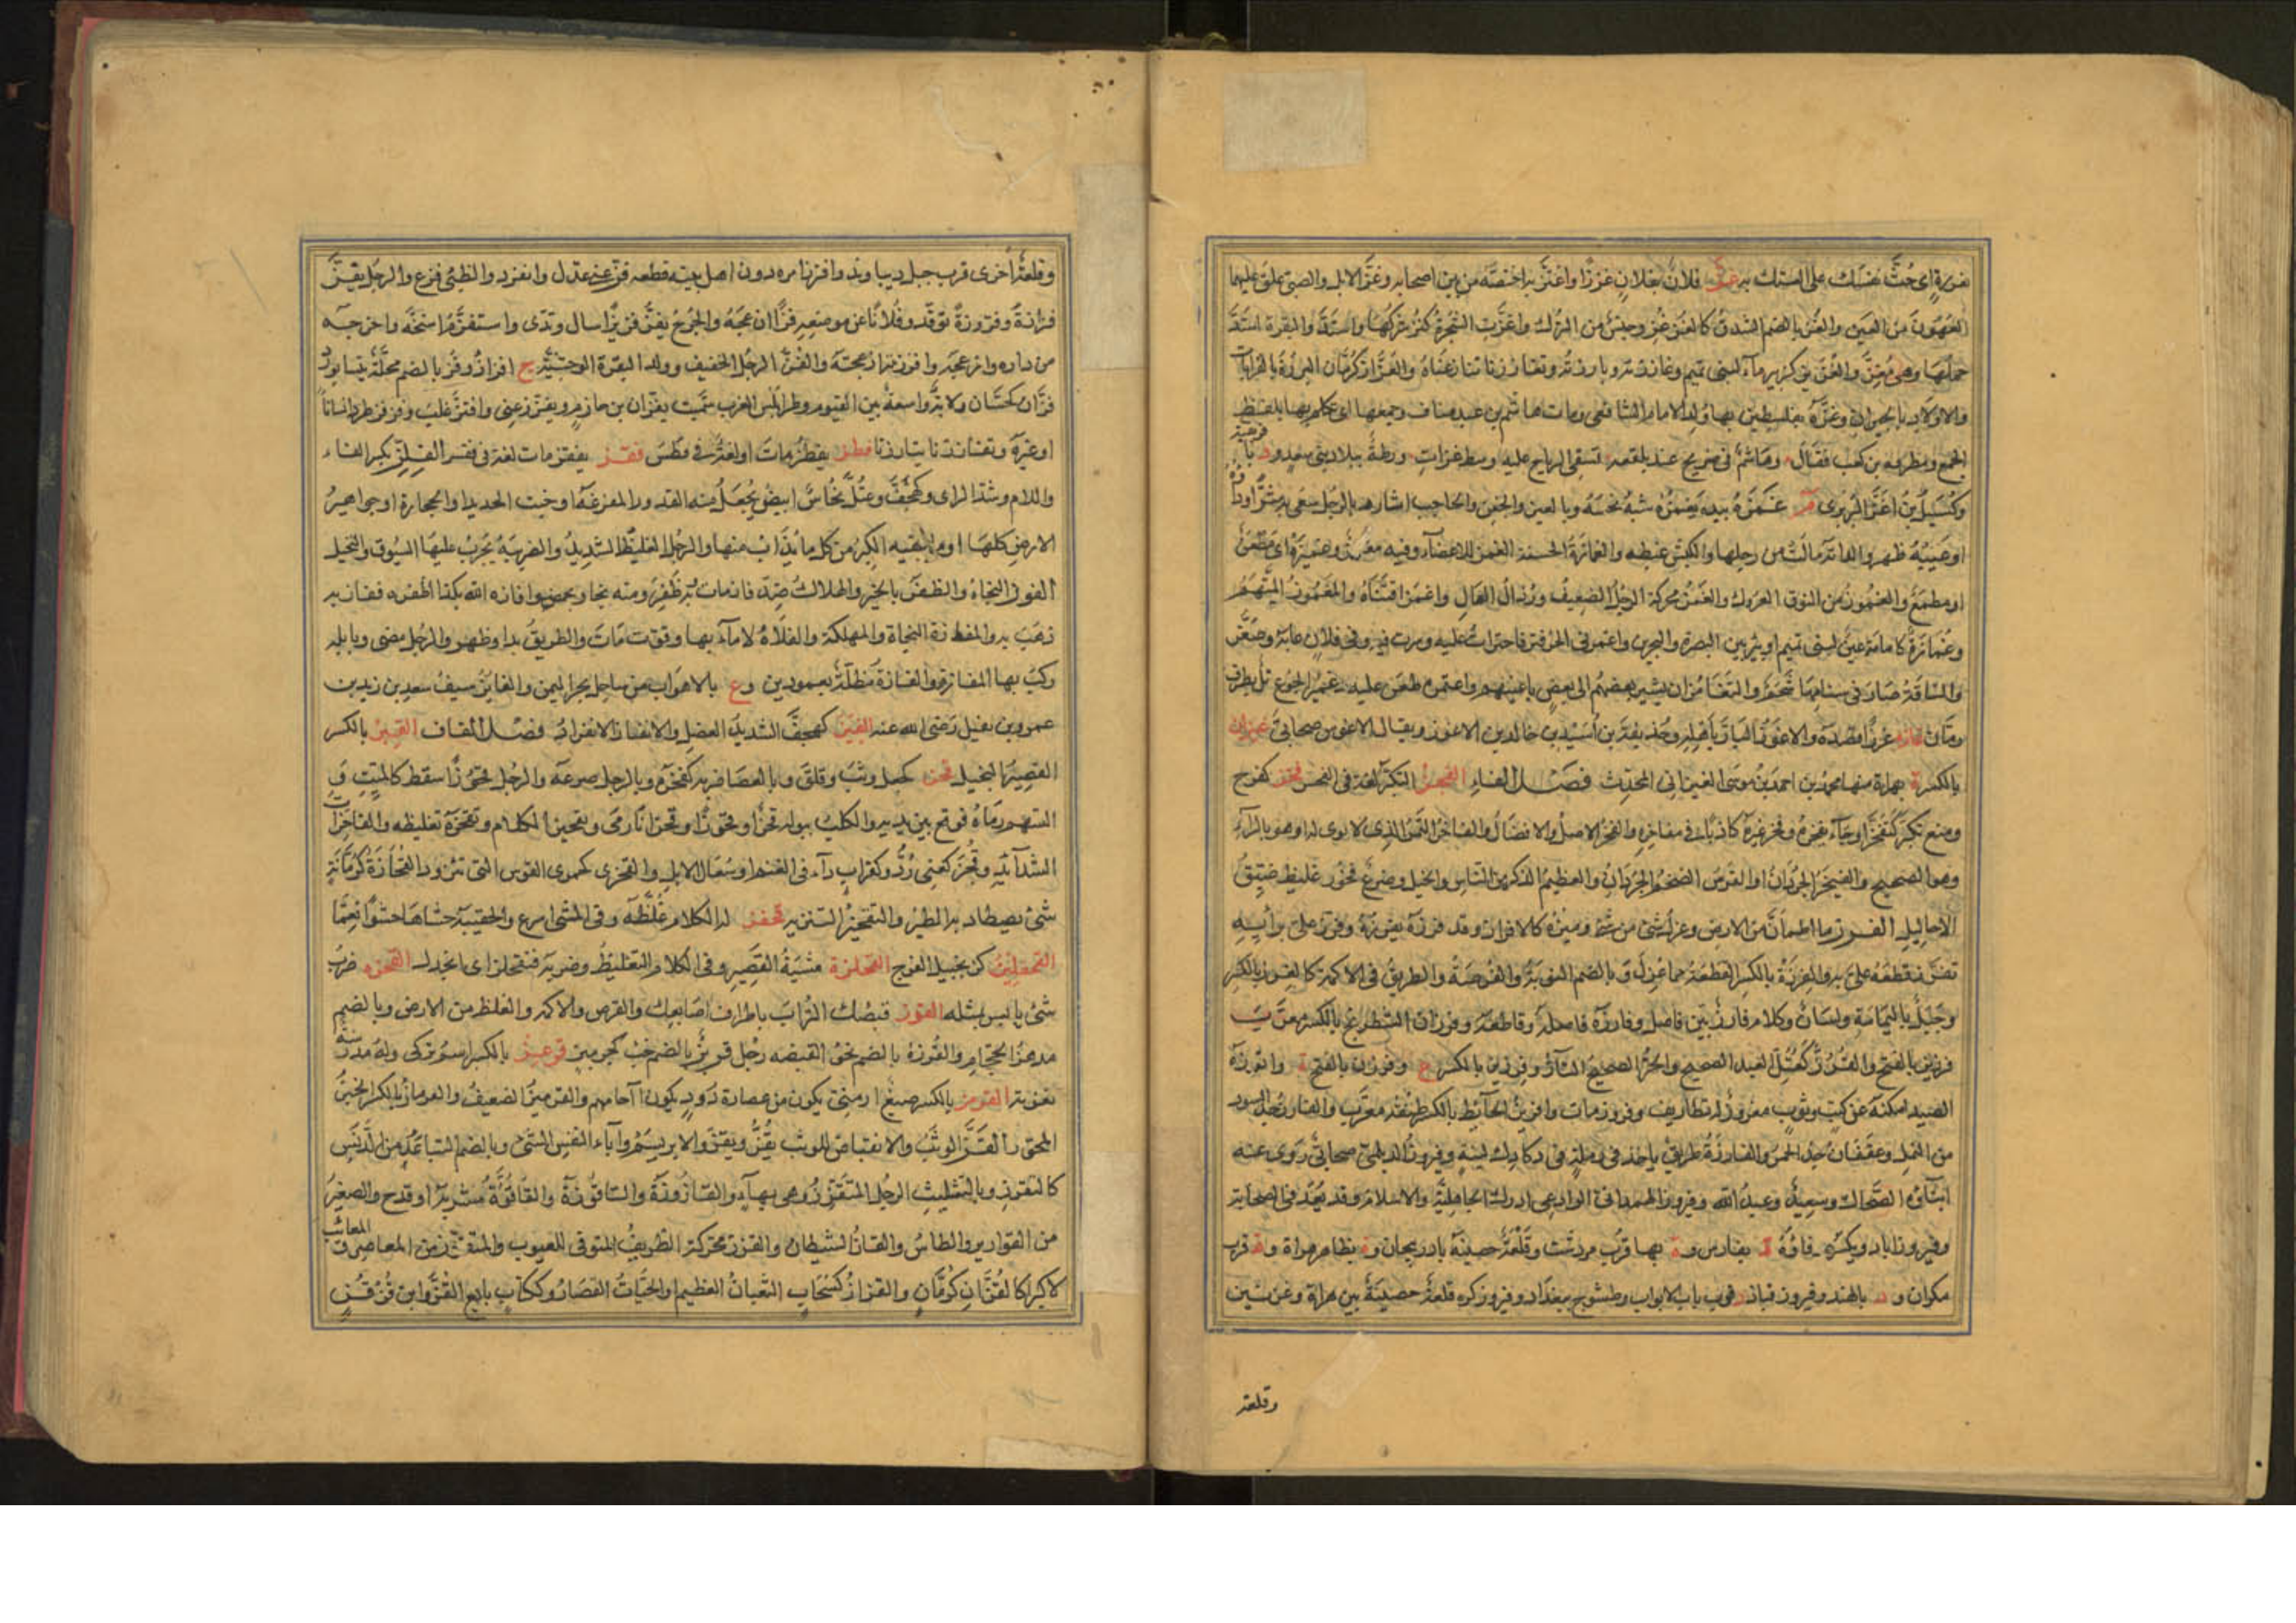 غرزة اى حث نفسك على التمسك به غز فلان بفلان غززا واغتز به اختصه من بين اصحابه وغز الابل والصبى علق عليهما
العهون من العين والغز بالضم الشدق كالغزغز وجنس من الترك واغزت الشجرة كثر شوكها واشتد والبقرة اشتد
حملها وهى مغز والغزيز كزبير ماء لبنى تميم وغاززته وبارزته وتغاززنا تنازعناه والغزاز كرمان البررة بالقرابات
والاولاد بالجيران وغزة بفلسطين بها ولد الامام الشافعى ومات هاشم بن عبد مناف وجمعها اى تكلم بها بلفظ
الجمع مطرود بن كعب فقال وهاشم فى ضريح عند بلقعة تسقى الرياح عليه وسط غزات ورملة ببلاد بنى سعد ود بافريقية
وكسيل بن اغز البربرى م غمزه بيده يغمزه شبه نخسه وبالعين والجفن والحاجب اشار وبالرجل سعى به شرا وداؤه
او عيبه ظهر والدابة مالت من رجلها والكبش غبطه والغمازة الحسنة الغمز للاعضاء وفيه مغمز وغميزة اى مطعن
او مطمع والغموز من النوق العروك والغمز محركة الرجل الضعيف ورذال المال واغمز اقتناه والمغموز المتهم
وغمازة كثمامة عين لبنى تميم او بئر بين البصرة والبحرين واغمزنى الحر فتر فاجترات عليه وسرت فيه وفى فلان عابه وصغر
والناقة صار فى سنامها شحم والتغامز ان يشير بعضهم الى بعض باعينهم واغتمزه طعن عليه وغمز الجوع تل بطرف
رمان غازه غوزا قصده والاغوز البار باهله وحذيفة بن اسيد بن خالد بن الاغوز ويقال الاغوس صحابى غيزان
بالكسر ة بهراة منها محمد بن احمد بن موسى الغيزانى المحدث فصل الفاء الفجز التكبر لغة فى الفجس فخز كفرح
ومنع تكبر كتفخز او جاء بفخزه وفخر غيره كاذبا فى مفاخره والفخز الاصل والافضال والفاخز التمر الذى لا نوى له او هو بالراء
وهو الصحيح والفيخز الجردان او الفرس الضخم الجردان والعظيم الذكر من الناس والخيل وضرع فخوز غليظ ضيق
الاحاليل الفرز ما اطمان من الارض وعزل شئ من شئ وميزه كالافراز وقد فرزه يفرزه وفرز على برأيه
تفريزا قطعه على به والفرزة بالكسر القطعة مما عزل و بالضم النوبة والفرصة والطريق فى الاكمة كالفرز بالكسر
وجبل باليمامة ولسان وكلام فارز بين فاصل وفارزه فاصله وقاطعه وفرزان الشطرنج بالكسر معرب
فرزين بالفتح والفرز كعتل العبد الصحيح والحر الصحيح التار وفرزين بالكسر ع وفرزن بالفتح ة وافرزه
الصيد امكنه عن كثب وثوب مفروز له تطاريف وفروز مات وافريز الحائط بالكسر طنفه معرب والفارز نحل اسود
من النمل وعقفان جد الحمر والفارزة طريق ياخذ فى رملة فى دكادك لينة وفيروز الديلمى صحابى روى عنه
ابناؤه الضحاك وسعيد وعبد الله وفيروز الهمدانى الوادعى ادرك الجاهلية والاسلام وقد يعد فى الصحابة
وفيروزاباد ويكسر فاؤه د بفارس وة بها قرب مردشت وقلعة حصينة باذربيجان وة بظاهر هراة وة قرب
مكران ود بالهند وفيروز قباذ د قرب باب الابواب وطسوج ببغداد وفيروزكوه قلعة حصينة بين هراة وغزنين
وقلعة
وقلعة اخرى قرب جبل ديباوند وافرزنا مره دون اهل بيته قطعه فز عنه عدل وانفرد والظبى فزع والرجل يفز
فزازة وفزوزة توقد وفلانا عن موضعه فزا ازعجه والجرح يفز فزيزا سال وندى واستفزه استخفه واخرجه
من داره وازعجه وافززته ازعجته والفز الرجل الخفيف وولد البقرة الوحشية ج افزاز وفز بالضم محلة بنيسابور
فزان كحسان ولاية واسعة بين الفيوم وطرابلس الغرب سميت بفزان بن حام وتفزز عنى وافتز غلب وفزفز طرد انسانا
او غيره وتفاززنا تبارزنا فطز يفطز مات او لغة فى فطس فقز يفقز مات لغة فى فقس الفلز بكسر الفاء
واللام وشد الزاى وكهجف وعتل نحاس ابيض يجعل منه القدور المفرغة او خبث الحديد او الحجارة او جواهر
الارض كلها او ما ينقيه الكير من كل ما يذاب منها والرجل الغليظ الشديد والضريبة يجرب عليها السيوف والبخيل
الفوز النجاة والظفر بالخير والهلاك ضد فاز مات وبه ظفر ومنه نجا وبعضه وافازه الله بكذا اظفره ففاز به
ذهب به والمفازة النجاة والمهلكة والفلاة لا ماء بها وفوز مات والطريق بدا وظهر والرجل مضى وبابله
ركب بها المفازة والفازة مظلة بعمودين وع بالاهواب من ساحل بحر اليمن والفايز سيف سعيد بن زيد بن
عمرو بن نفيل رضى الله عنه الفيز كهجف الشديد العضل والانفياز الانفراد فصل القاف القبز بالكسر
القصير البخيل قحز كجعل وثب وقلق وبالعصا ضربه كقحزه وبالرجل صرعه والرجل قحوزا سقط كالميت و
السهم رماه فوقع بين يديه والكلب ببوله قحزا وقحوزا وقحزانا رمى وتقحيز الكلام وتقحزه تغليظه والقاحزات
الشدائد وقحز كعنى رد وكغراب داء فى الغنم او سعال الابل والقحزى كجمزى القوس التى تنزو والقحازة كرمانة
شئ يصطاد به الطير والتقحيز التنزيه قحفز له الكلام غلظه وفى المشى اسرع والحقيبة حشاها حشوا نعما
القحفليز كزنجبيل الفرج القحلزة مشية القصير وفى الكلام التغليظ وضربه فتقحلز اى انجدل القحزه ضرب
شئ يابس بمثله القرز قبضك التراب باطراف اصابعك والقرص والاكمة والغلظ من الارض وبالضم
مدهن الحجام والقرزة بالضم نحو القبضة رجل قربز بالضم خب كجربز قرعيز بالكسر اسم تركى وله مدرسة
بغزنة القرمز بالكسر صبغ ارمنى يكون من عصارة دود يكون فى آجامهم والقرميز الضعيف والقرماز بالكسر الخبز
المحور القز الوثب والانقباض للوثب يقز ويقز والابريسم واباء النفس الشئ وبالضم التباعد من الدنس
كالتقزز وبالتثليث الرجل المتقزز وهى بهاء والقازوزة والقاقوزة والقاقزة مشربة او قدح والصغير
من القوارير والطاس والقاز الشيطان والقزز محركة الظريف المتوقى للعيوب والمتقزز من المعاصى والمعائب
لا كبرا كالقزاز كرمان والقزاز كسحاب الثعبان العظيم او الحيات القصار وككتاب بايع القز وابن قزقز